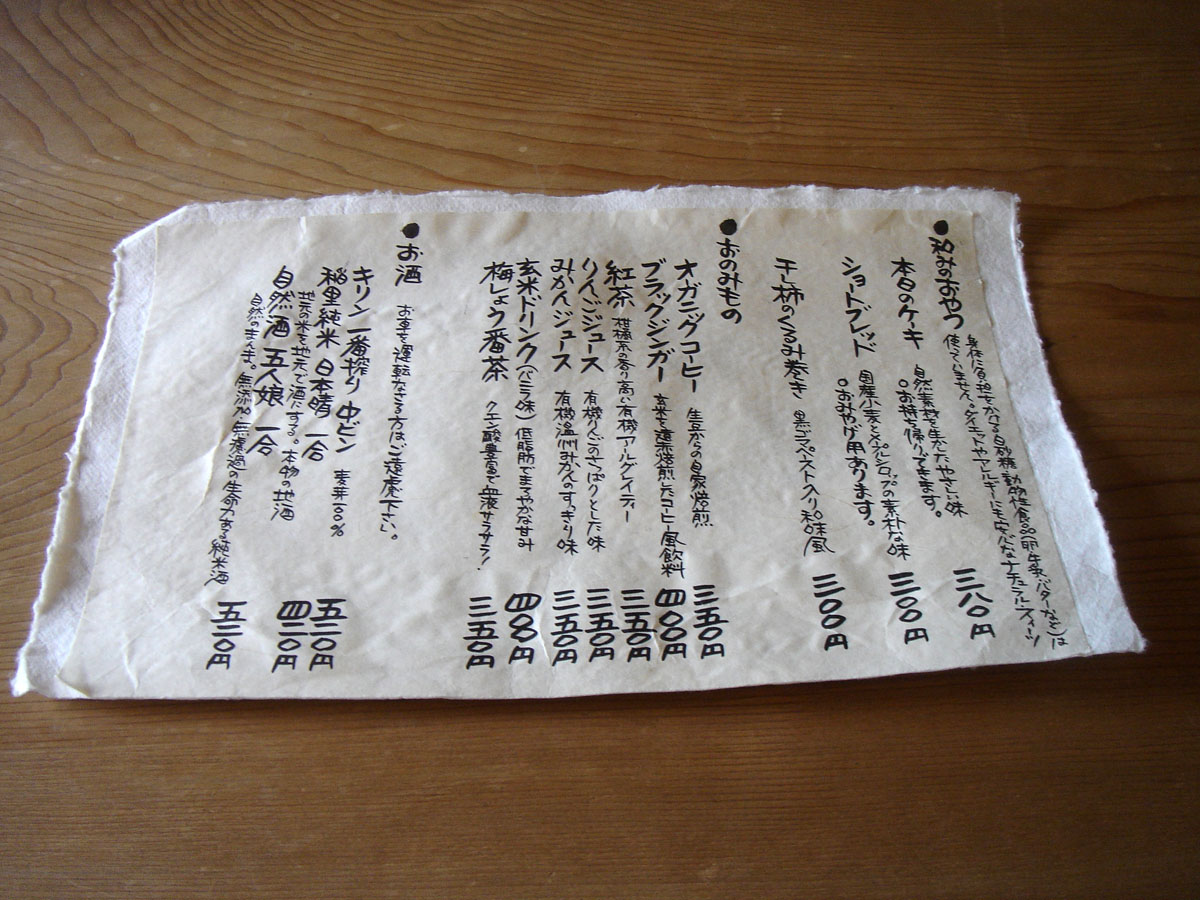 ●和みのおやつ
身体に負担をかける白砂糖、動物性食品(卵・牛乳・バターなど)は
使っていません。ダイエットやアレルギーにも安心なナチュラルスィーツ
本日のケーキ 自然素材を生かしたやさしい味 三八〇円
○お持ち帰りできます。
ショートブレッド 国産小麦とメープルシロップの素朴な味 三〇〇円
○おみやげ用あります。
干し柿のくるみ巻き 黒ゴマペースト入り和味風 三〇〇円
●おのみもの
オガニックコーヒー 生豆からの自家焙煎 三五〇円
ブラックジンガー 玄米を遠赤焙煎したコーヒー風飲料 四〇〇円
紅茶 柑橘系の香り高い有機アールグレイティー 三五〇円
りんごジュース 有機りんごのさっぱりとした味 三五〇円
みかんジュース 有機温州みかんのすっきり味 三五〇円
玄米ドリンク(バニラ味) 低脂肪でまろやかな甘み 四〇〇円
梅しょう番茶 クエン酸豊富で血液サラサラ! 三五〇円
●お酒 お車を運転なさる方はご遠慮下さい。
キリン一番搾り 中ビン 麦芽100% 五一〇円
稲里純米 日本晴 一合 四二〇円
地元の米を地元で酒にする。本物の地酒
自然酒 五人娘 一合 五二〇円
自然のまんま。無添加・無濾過の生命力ある純米酒